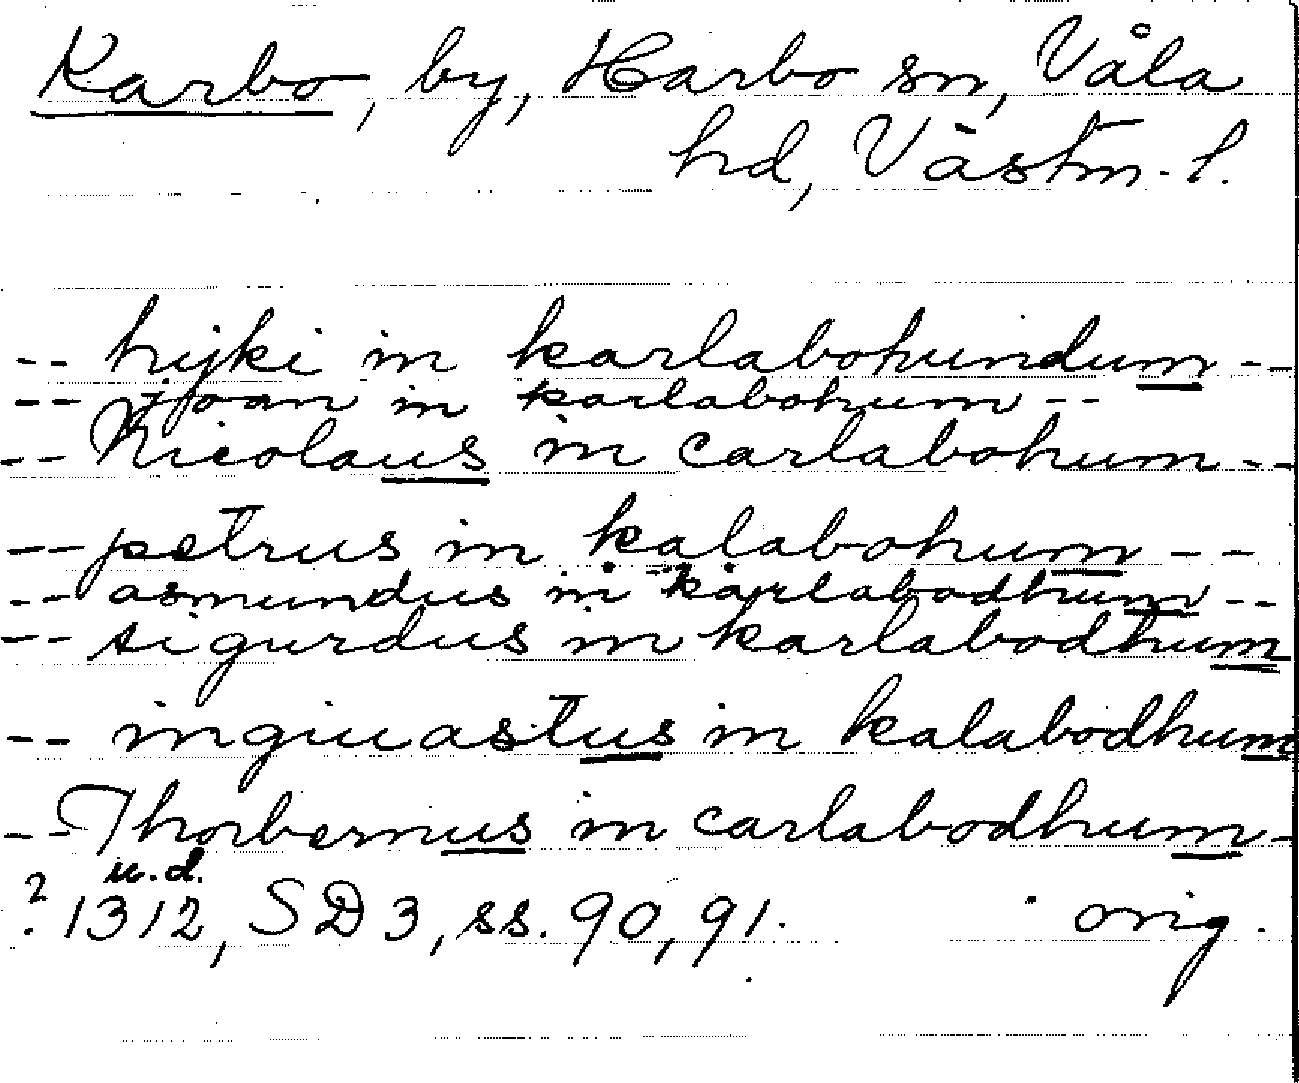 Karbo, by, Harbo sn, Våla
hd, Västm. l.
-- hijki in karlabohundum --
-- joan in karlabohum --
-- Nicolaus in carlabohum --
-- petrus in kalabohum --
-- asmundus in karlabodhum --
-- sigurdus in karlabodhum
-- inguastus in kalabodhum
-- Thorbernus in carlabodhum -
u.d.
? 1312, SD 3, ss. 90, 91. orig.